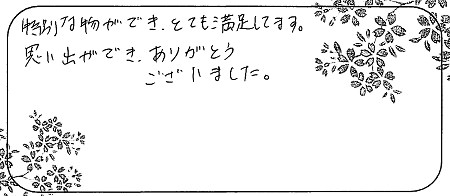 特別な物ができ、とても満足してます。
思い出ができ、ありがとう
ございました。